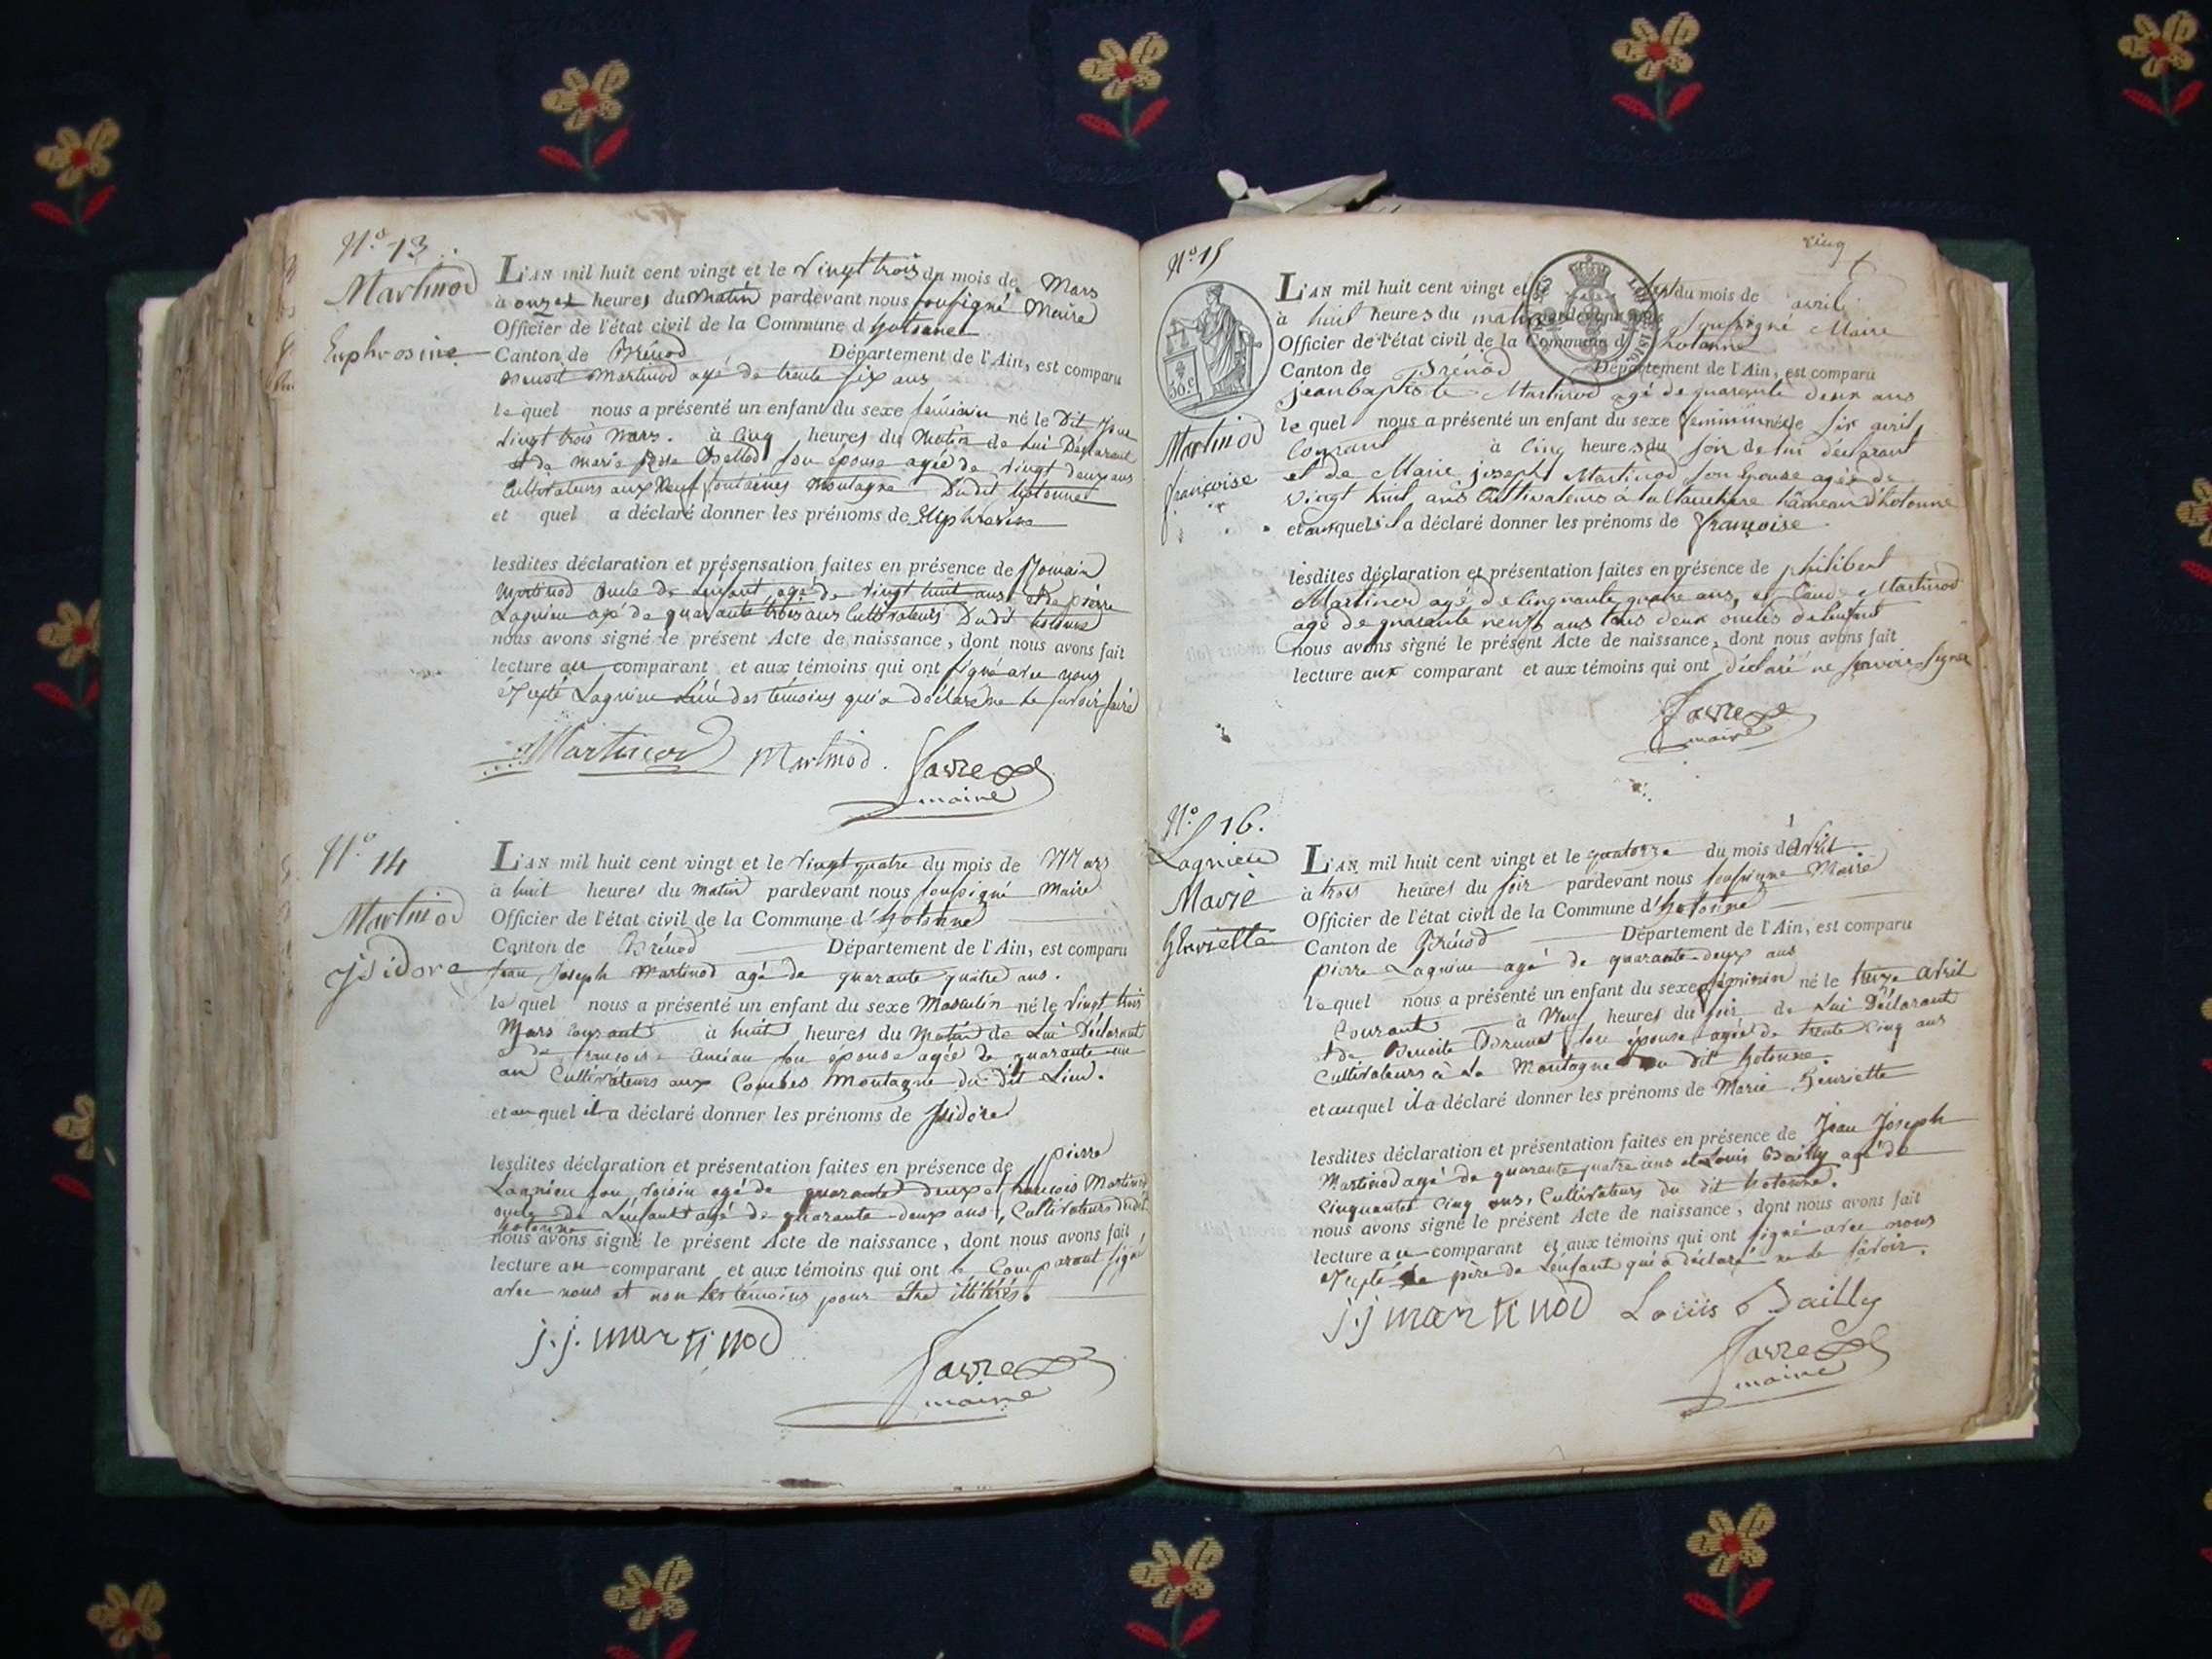 N.o 13
Martinod
Euphrosine
L'AN mil huit cent vingt et le vingt trois du mois de Mars
à onze heures du matin pardevant nous soussigné Maire
Officier de l'état civil de la Commune d'hotonne
Canton de Brénod Département de l'Ain, est comparu
Benoit Martinod agé de trente six ans
le quel nous a présenté un enfant du sexe féminin né le Dit Jour
vingt trois Mars. à cinq heures du Matin de Lui Déclarant
et de Marie son épouse agée de vingt deux ans
Cultivateurs aux Neuf fontaines Montagne Dudit hotonne
et quel a déclaré donner les prénoms de Euphrosine
lesdites déclaration et présensation faites en présence de Romain
Martinod oncle de Lenfant agé de vingt huit ans et de pierre
Lagnieu agé de quarante trois ans Cultivateurs Dudit hotonne
nous avons signé le présent Acte de naissance, dont nous avons fait
lecture au comparant et aux témoins qui ont signé avec nous
Excepté Lagnieu Lun des témoins qui a déclaré ne le savoir faire
Martinod Martinod. Favre
maire
N.o 14
Martinod
isidore
L'AN mil huit cent vingt et le vingt quatre du mois de Mars
à huit heures du matin pardevant nous soussigné Maire
Officier de l'état civil de la Commune d'hotonne
Canton de Brénod Département de l'Ain, est comparu
Jean Joseph Martinod agé de quarante quatre ans.
le quel nous a présenté un enfant du sexe Masculin né le vingt trois
Mars courant à huit heures du Matin de Lui Déclarant
et de françoise son épouse agée de quarante un
an Cultivateurs aux Combes Montagne du dit Lieu.
et au quel il a déclaré donner les prénoms de Isidore
lesdites déclaration et présentation faites en présence de pierre
Lagnieu son voisin agé de quarante deux et françois Martinod
oncle de Lenfant agé de quarante deux ans, Cultivateurs dudit
hotonne
nous avons signé le présent Acte de naissance, dont nous avons fait
lecture au comparant et aux témoins qui ont le Comparant signé
avec nous et non Les témoins pour être illitérés.
j.j. martinod
Favre
maire
N.o 15
cinq
50.c
1816.
Martinod
françoise
L'AN mil huit cent vingt et le du mois de avril
à huit heures du matin pardevant nous soussigné Maire
Officier de l'état civil de la Commune d'hotonne
Canton de Brénod Département de l'Ain, est comparu
jean baptiste Martinod agé de quarante deux ans
le quel nous a présenté un enfant du sexe feminin née le six avril
courant à cinq heures du soir de lui déclarant
et de Marie joseph Martinod son Epouse agée de
vingt huit ans Cultivateurs à hâmeau d'hotonne
et auquel il a déclaré donner les prénoms de françoise
lesdites déclaration et présentation faites en présence de philibert
Martinod agé de cinquante quatre ans, et Claude Martinod
agé de quarante neuf ans tous deux oncles de lenfant
nous avons signé le présent Acte de naissance, dont nous avons fait
lecture aux comparant et aux témoins qui ont déclaré ne savoir signer
Favre
maire
N.o 16.
Lagnieu
Marie
henriette
L'AN mil huit cent vingt et le quatorze du mois d'avril
à trois heures du soir pardevant nous soussigné Maire
Officier de l'état civil de la Commune d'hotonne
Canton de Brénod Département de l'Ain, est comparu
pierre Lagnieu agé de quarante deux ans
le quel nous a présenté un enfant du sexe féminin né le treize avril
Courant à heures du soir de Lui Déclarant
et de Benoite Brunet son épouse agée de trente cinq ans
Cultivateurs à La Montagne du dit hotonne.
et au quel il a déclaré donner les prénoms de Marie henriette
lesdites déclaration et présentation faites en présence de Jean Joseph
Martinod agé de quarante quatre ans et Louis Bailly agé de
Cinquante Cinq ans, Cultivateurs du dit hotonne.
nous avons signé le présent Acte de naissance, dont nous avons fait
lecture au comparant et aux témoins qui ont signé avec nous
Excepté le père de Lenfant qui a déclaré ne le savoir.
j.j martinod Louis Bailly
Favre
maire